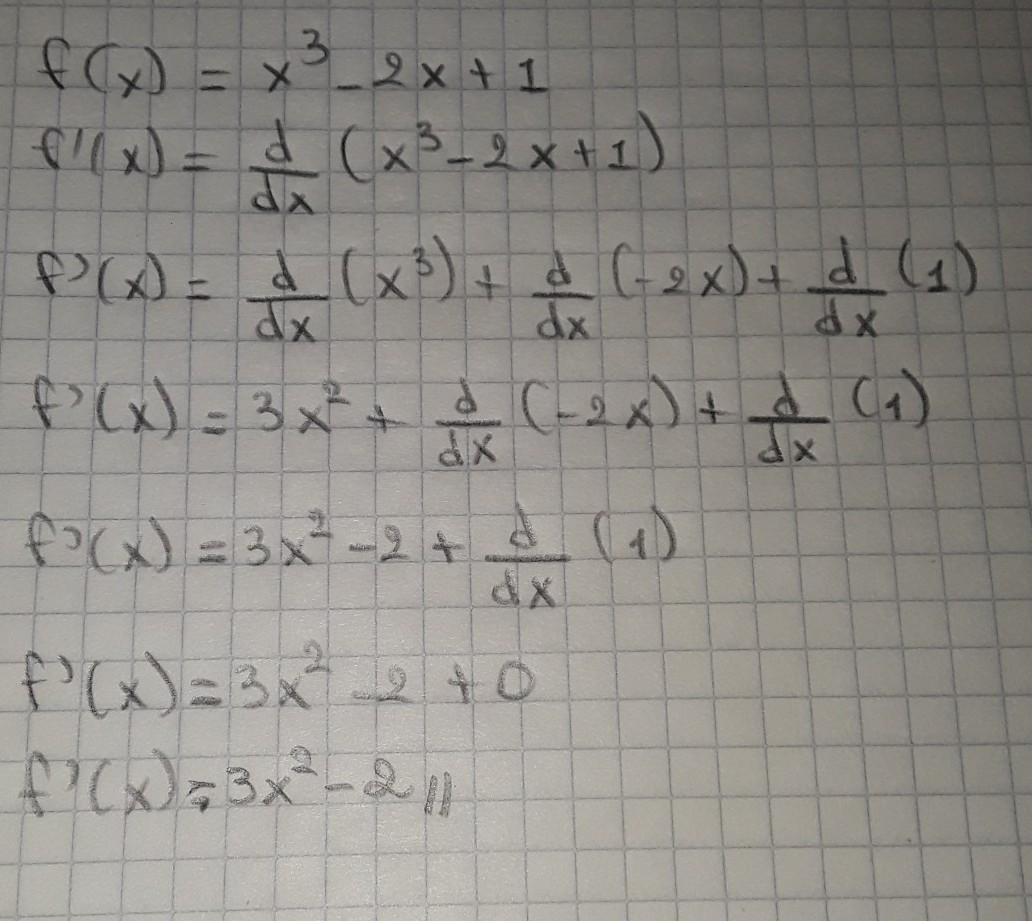 f(x) = x³ - 2x + 1
f'(x) = d/dx (x³ - 2x + 1)
f'(x) = d/dx (x³) + d/dx (-2x) + d/dx (1)
f'(x) = 3x² + d/dx (-2x) + d/dx (1)
f'(x) = 3x² - 2 + d/dx (1)
f'(x) = 3x² - 2 + 0
f'(x) = 3x² - 2 //